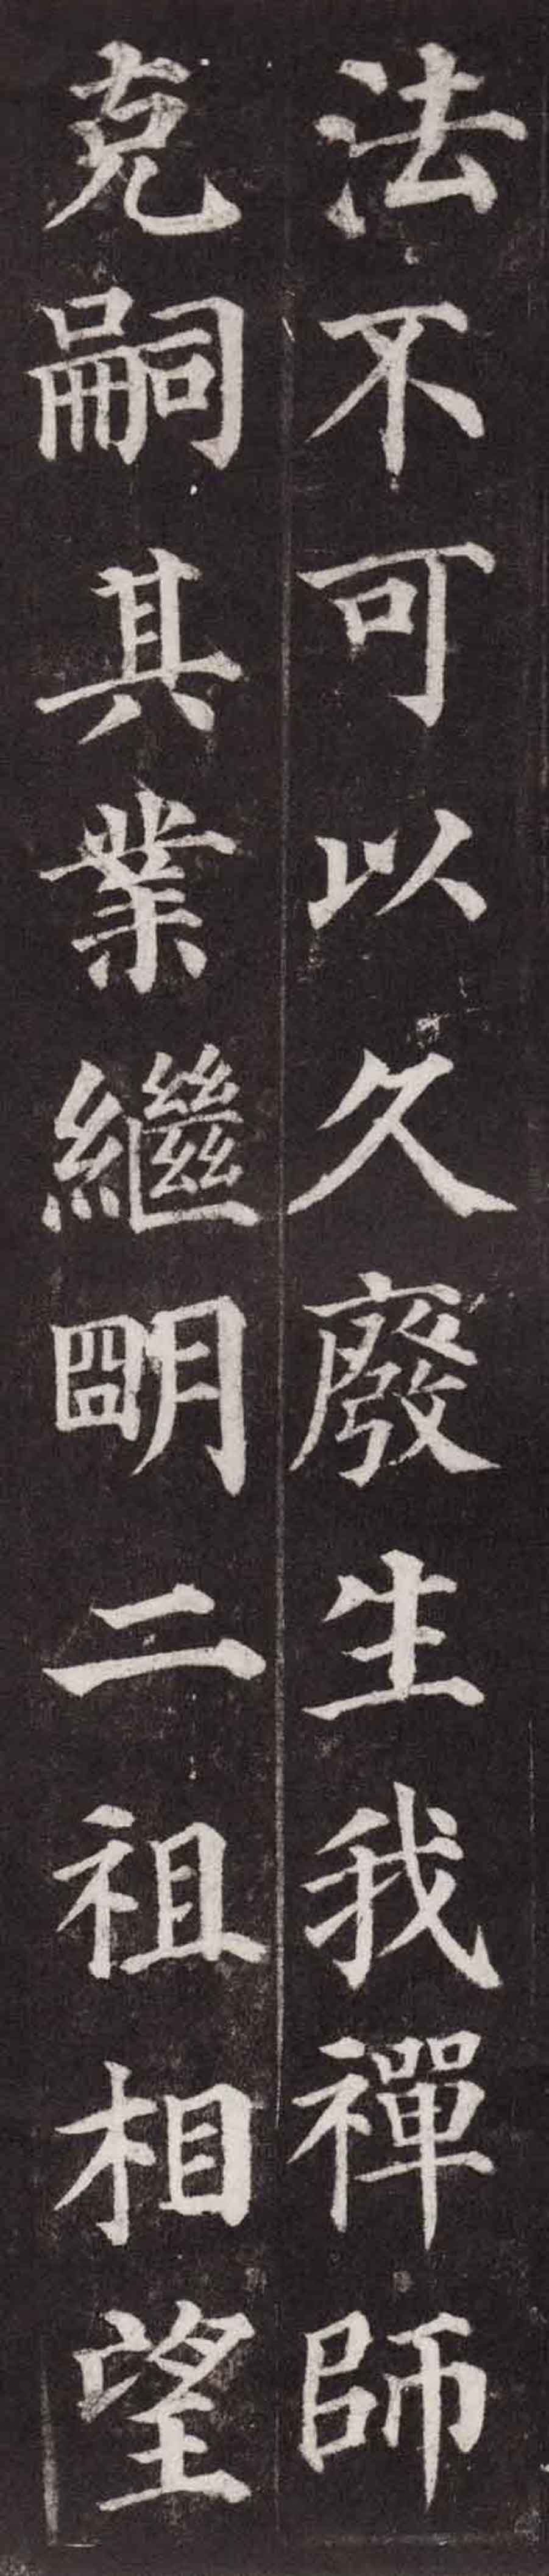 法不可以久廢生我禪師
克嗣其業繼明二祖相望